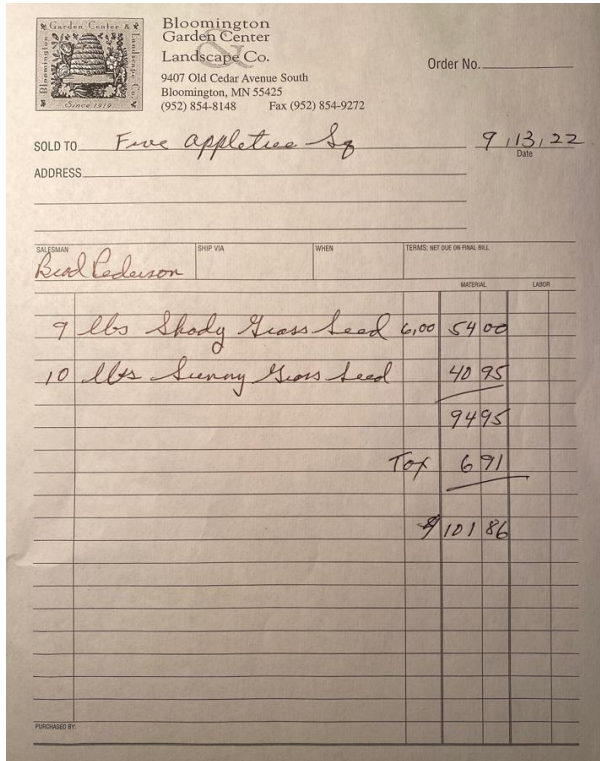 Garden Center &
Bloomington
Landscape Co.
Since 1919
Bloomington
Garden Center
&
Landscape Co.
9407 Old Cedar Avenue South
Bloomington, MN 55425
(952) 854-8148 Fax (952) 854-9272
Order No.
SOLD TO Five appletree Sq 9,13,22
Date
ADDRESS
SALESMAN SHIP VIA WHEN TERMS: NET DUE ON FINAL BILL
Brad Pederson
MATERIAL LABOR
9 lbs Shady Grass Seed 6,00 54 00
10 lbs Sunny Grass Seed 40 95
94 95
Tax 6 91
$ 101 86
PURCHASED BY: